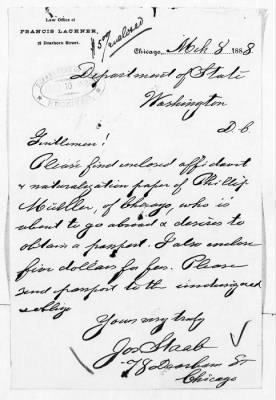 Law Office of
FRANCIS LACKNER,
78 Dearborn Street.
$5.00 enclosed
Chicago, Mch 8, 1888
Department of State
Washington
D. C
Gentlemen!
Please find enclosed affidavit
& naturalization paper of Phillip
Müeller, of Chicago, who is
about to go abroad & desires to
obtain a passport. I also enclose
five dollars for fees. Please
send passport to the undersigned
& oblige
Yours very truly
Jos Staab
78 Dearborn St
Chicago